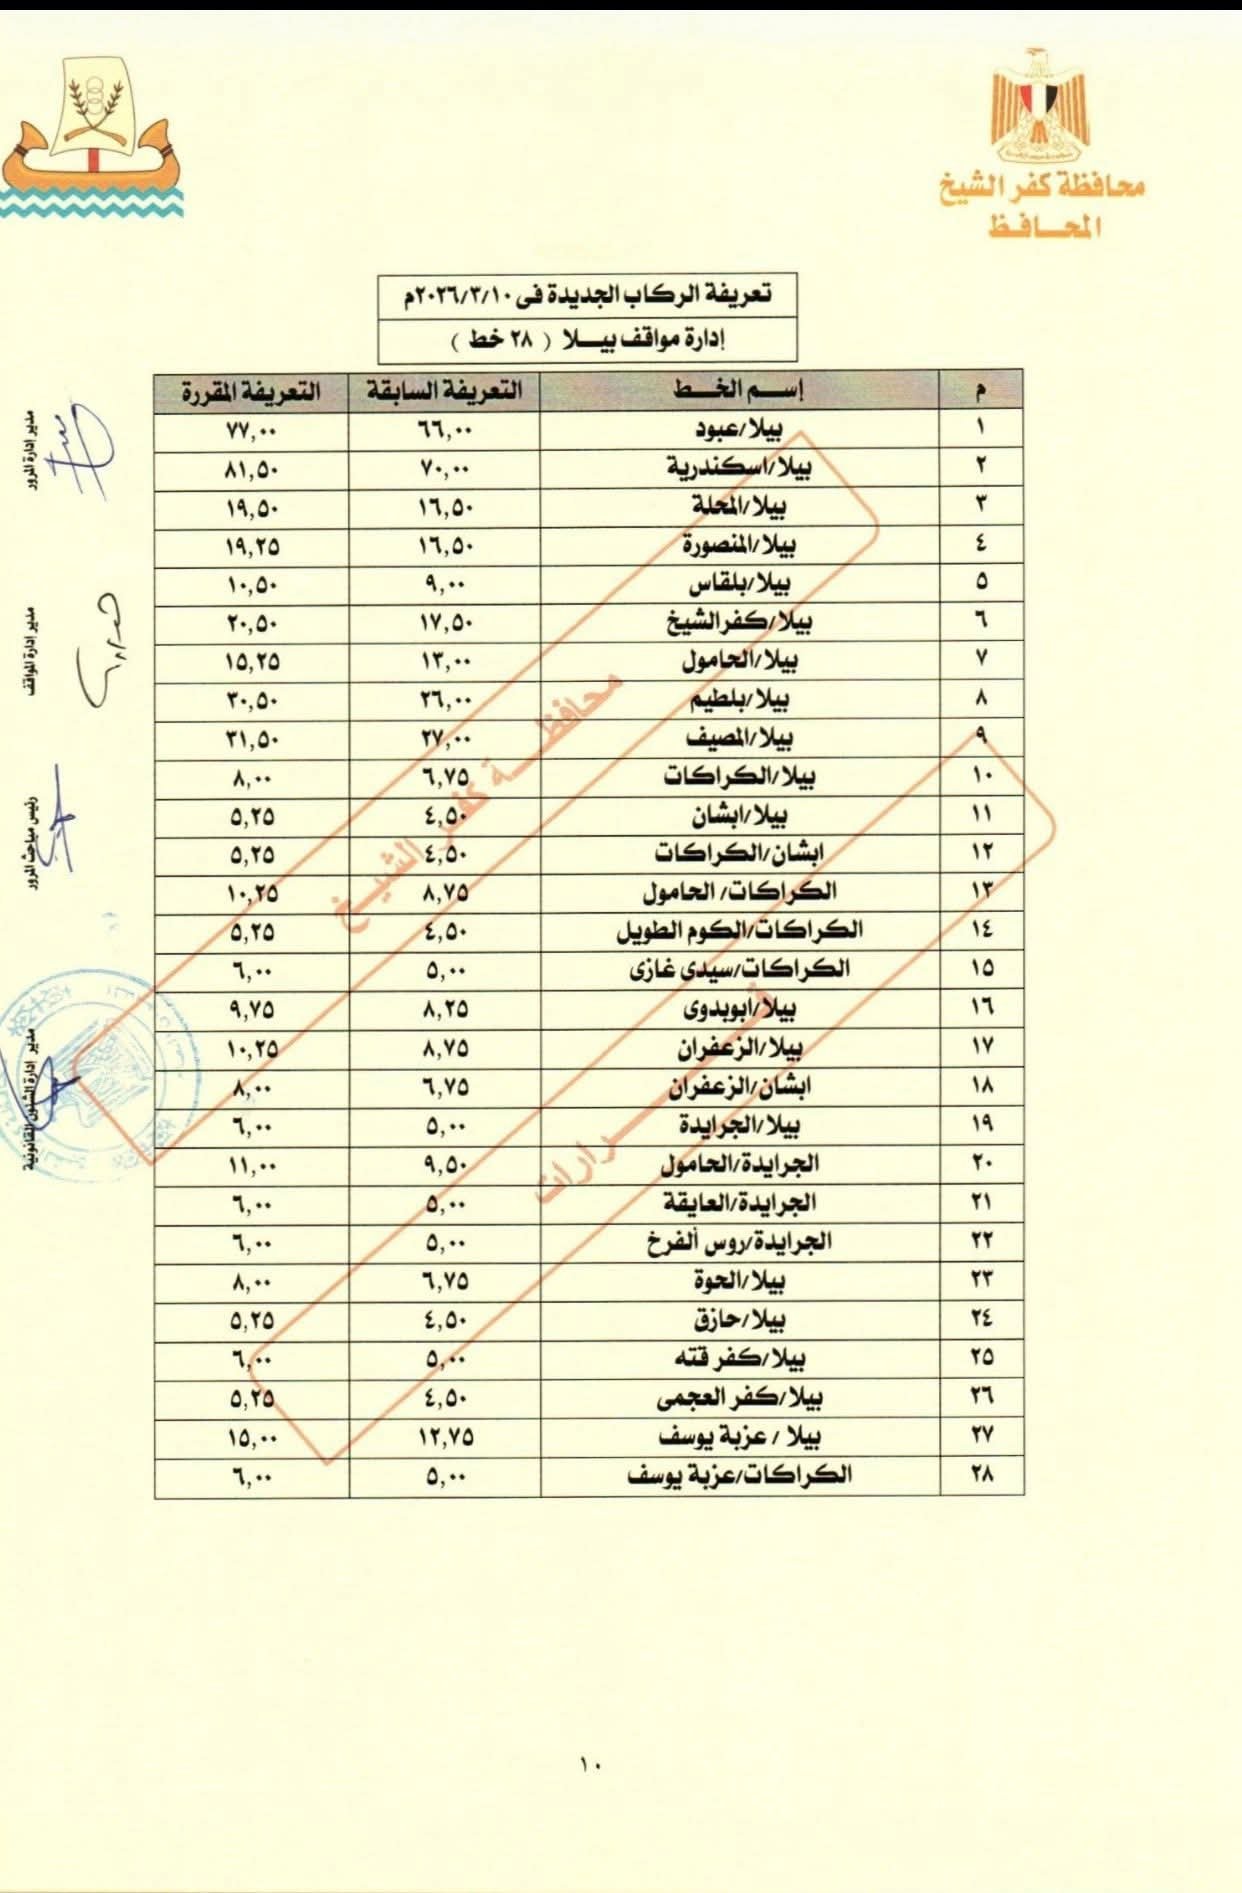 محافظة كفر الشيخ
المحـــافـظ
تعريفة الركاب الجديدة فى ٢٠٢٦/٣/١٠م
إدارة مواقف بيـــلا ( ٢٨ خط )
م إســم الخـــط التعريفة السابقة التعريفة المقررة
١ بيلا/عبود ٦٦,٠٠ ٧٧,٠٠
٢ بيلا/اسكندرية ٧٠,٠٠ ٨١,٥٠
٣ بيلا/المحلة ١٦,٥٠ ١٩,٥٠
٤ بيلا/المنصورة ١٦,٥٠ ١٩,٢٥
٥ بيلا/بلقاس ٩,٠٠ ١٠,٥٠
٦ بيلا/كفرالشيخ ١٧,٥٠ ٢٠,٥٠
٧ بيلا/الحامول ١٣,٠٠ ١٥,٢٥
٨ بيلا/بلطيم ٢٦,٠٠ ٣٠,٥٠
٩ بيلا/المصيف ٢٧,٠٠ ٣١,٥٠
١٠ بيلا/الكراكات ٦,٧٥ ٨,٠٠
١١ بيلا/ابشان ٤,٥٠ ٥,٢٥
١٢ ابشان/الكراكات ٤,٥٠ ٥,٢٥
١٣ الكراكات/ الحامول ٨,٧٥ ١٠,٢٥
١٤ الكراكات/الكوم الطويل ٤,٥٠ ٥,٢٥
١٥ الكراكات/سيدى غازى ٥,٠٠ ٦,٠٠
١٦ بيلا/ابوبدوى ٨,٢٥ ٩,٧٥
١٧ بيلا/الزعفران ٨,٧٥ ١٠,٢٥
١٨ ابشان/الزعفران ٦,٧٥ ٨,٠٠
١٩ بيلا/الجرايدة ٥,٠٠ ٦,٠٠
٢٠ الجرايدة/الحامول ٩,٥٠ ١١,٠٠
٢١ الجرايدة/العايقة ٥,٠٠ ٦,٠٠
٢٢ الجرايدة/روس ألفرخ ٥,٠٠ ٦,٠٠
٢٣ بيلا/الحوة ٦,٧٥ ٨,٠٠
٢٤ بيلا/حازق ٤,٥٠ ٥,٢٥
٢٥ بيلا/كفر قته ٥,٠٠ ٦,٠٠
٢٦ بيلا/كفر العجمى ٤,٥٠ ٥,٢٥
٢٧ بيلا / عزبة يوسف ١٢,٧٥ ١٥,٠٠
٢٨ الكراكات/عزبة يوسف ٥,٠٠ ٦,٠٠
محافظـــة كفـر الشيـخ
قـــرارات
مدير إدارة المرور
مدير إدارة المواقف
رئيس مباحث المرور
مدير إدارة الشئون القانونية
١٠